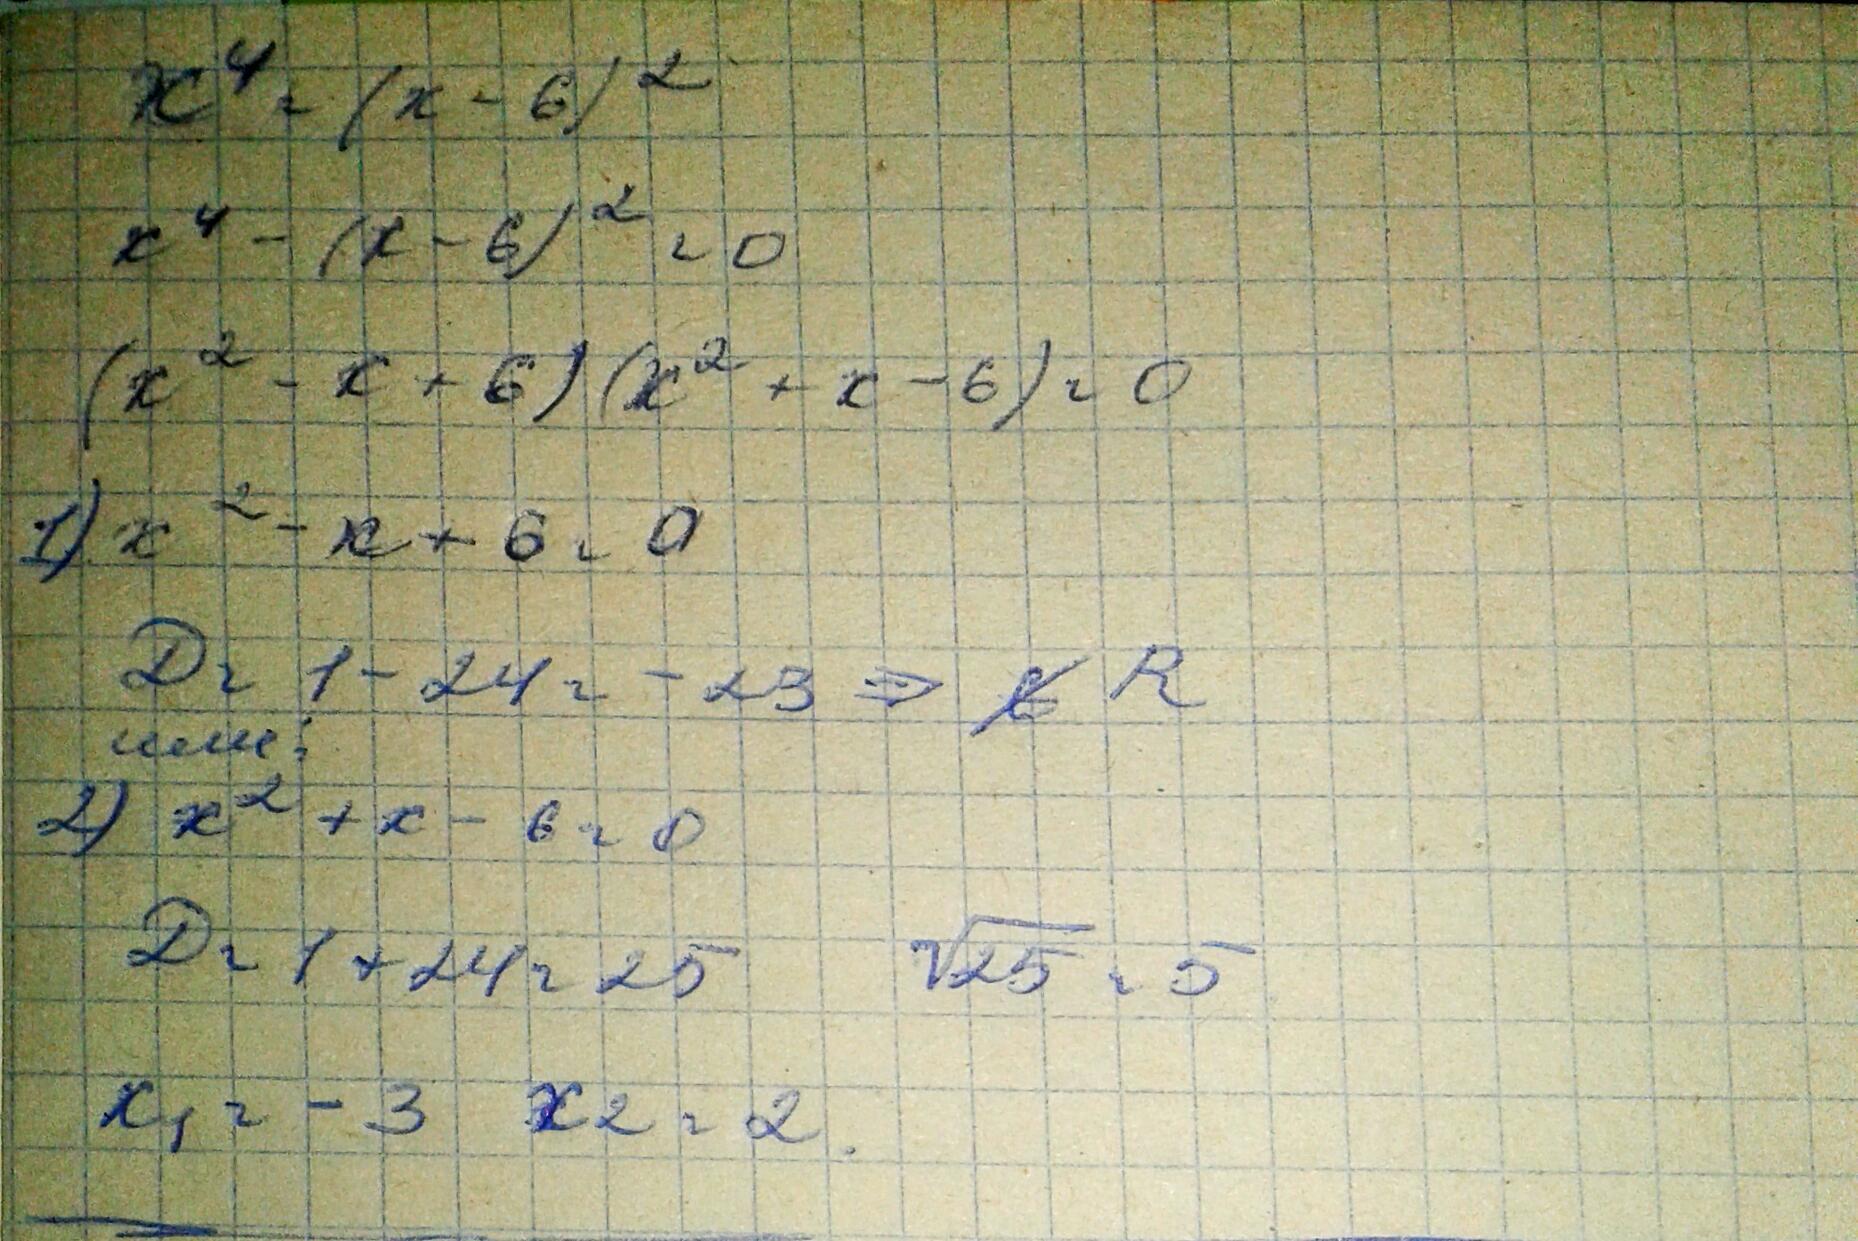 x⁴ = (x - 6)²
x⁴ - (x - 6)² = 0
(x² - x + 6)(x² + x - 6) = 0
1) x² - x + 6 = 0
D = 1 - 24 = -23 ⇒ ∉ R
или:
2) x² + x - 6 = 0
D = 1 + 24 = 25 √25 = 5
x₁ = -3 x₂ = 2.